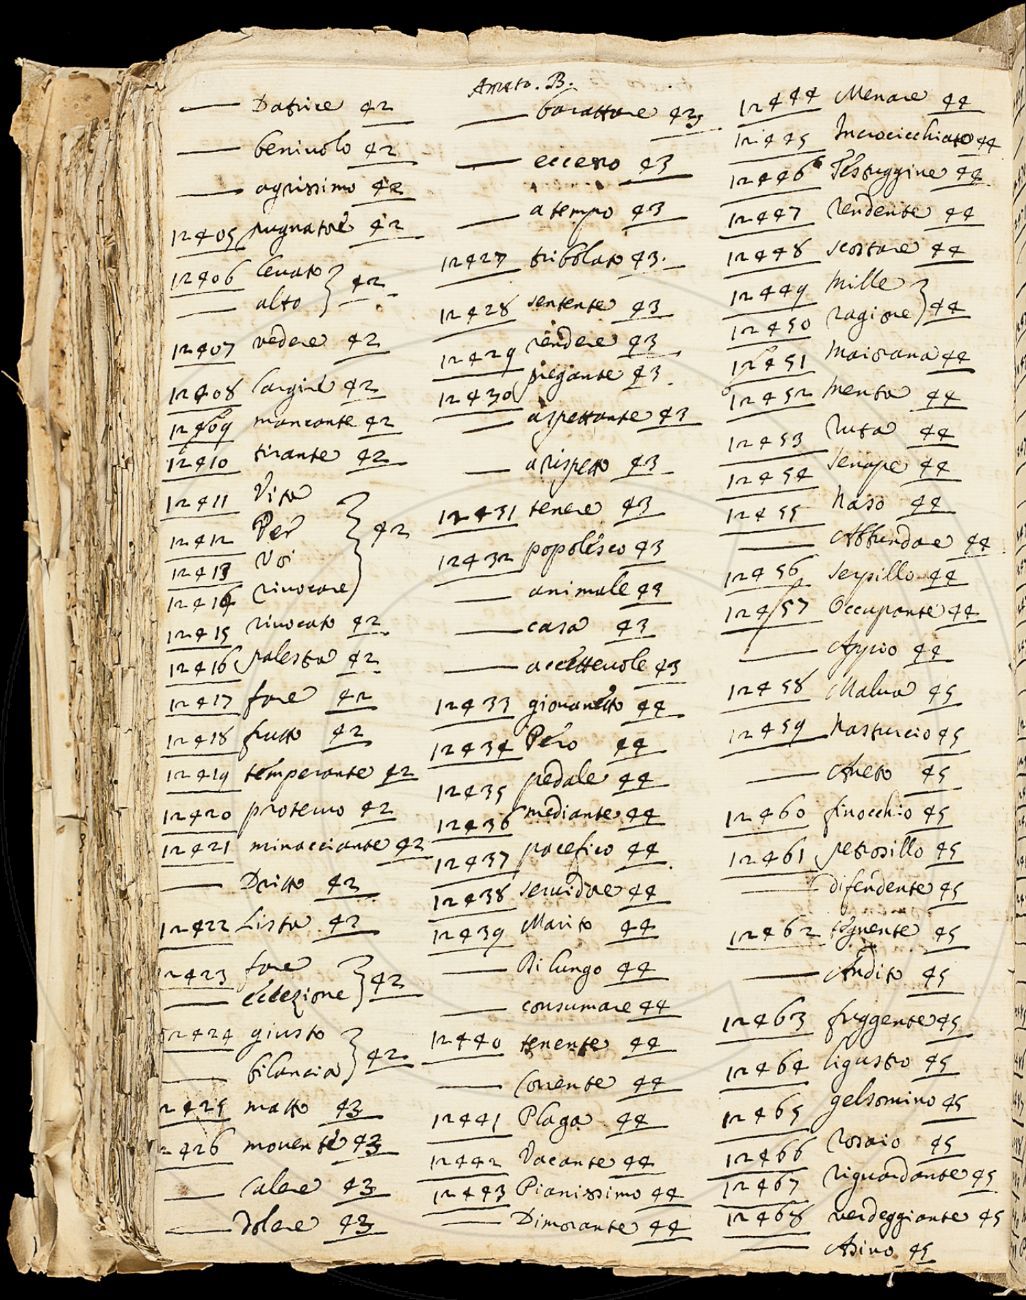 B.
— benivolo 42
— agrissimo 42
12405 pugnatore 42
12406 levato
— alto } 42
12407 vedere 42
12408 largire 42
12409 mancante 42
12410 tirante 42
12411 Vita
12412 Per
12413 Voi
12414 rinovare } 42
12415 rinovato 42
12416 palestra 42
12417 fare 42
12418 frutto 42
12419 temperante 42
12420 protervo 42
12421 minacciante 42
— Dritto 42
12422 Lista 42
12423 fare
— eccezione } 42
12424 giusto
— bilancia } 42
12425 matto 43
12426 movente 43
— calare 43
— Dolere 43
— barattare 43
— eccesso 43
— a tempo 43
12427 tribolato 43.
12428 sentente 43
12429 rendere 43
12430 piegante 43
— aspettante 43
— a rispetto 43
12431 tenere 43
12432 popolesco 43
— animale 43
— casa 43
— accettevole 43
12433 giovanetto 44
12434 Pero 44
12435 pedale 44
12436 mediante 44
12437 pacefico 44
12438 servidore 44
12439 Marito 44
— Di lungo 44
— consumare 44
12440 tenente 44
— Corrente 44
12441 Plaga 44
12442 Vacante 44
12443 Pianissimo 44
— Dimorante 44
12444 Menare 44
12445 Incrocicchiato 44
12446 Testuggine 44
12447 rendente 44
12448 scortare 44
12449 Mille
12450 ragione } 44
12451 Maiorana 44
12452 menta 44
12453 ruta 44
12454 senape 44
12455 Naso 44
— Abbundare 44
12456 Serpillo 44
12457 Occupante 44
— Appio 44
12458 Malva 45
12459 Nasturcio 45
— Aneto 45
12460 finocchio 45
12461 petrosillo 45
— difendente 45
12462 45
— Andito 45
12463 fuggente 45
12464 ligustro 45
12465 gelsomino 45
12466 rosaio 45
12467 riguardante 45
12468 verdeggiante 45
— Asino 45